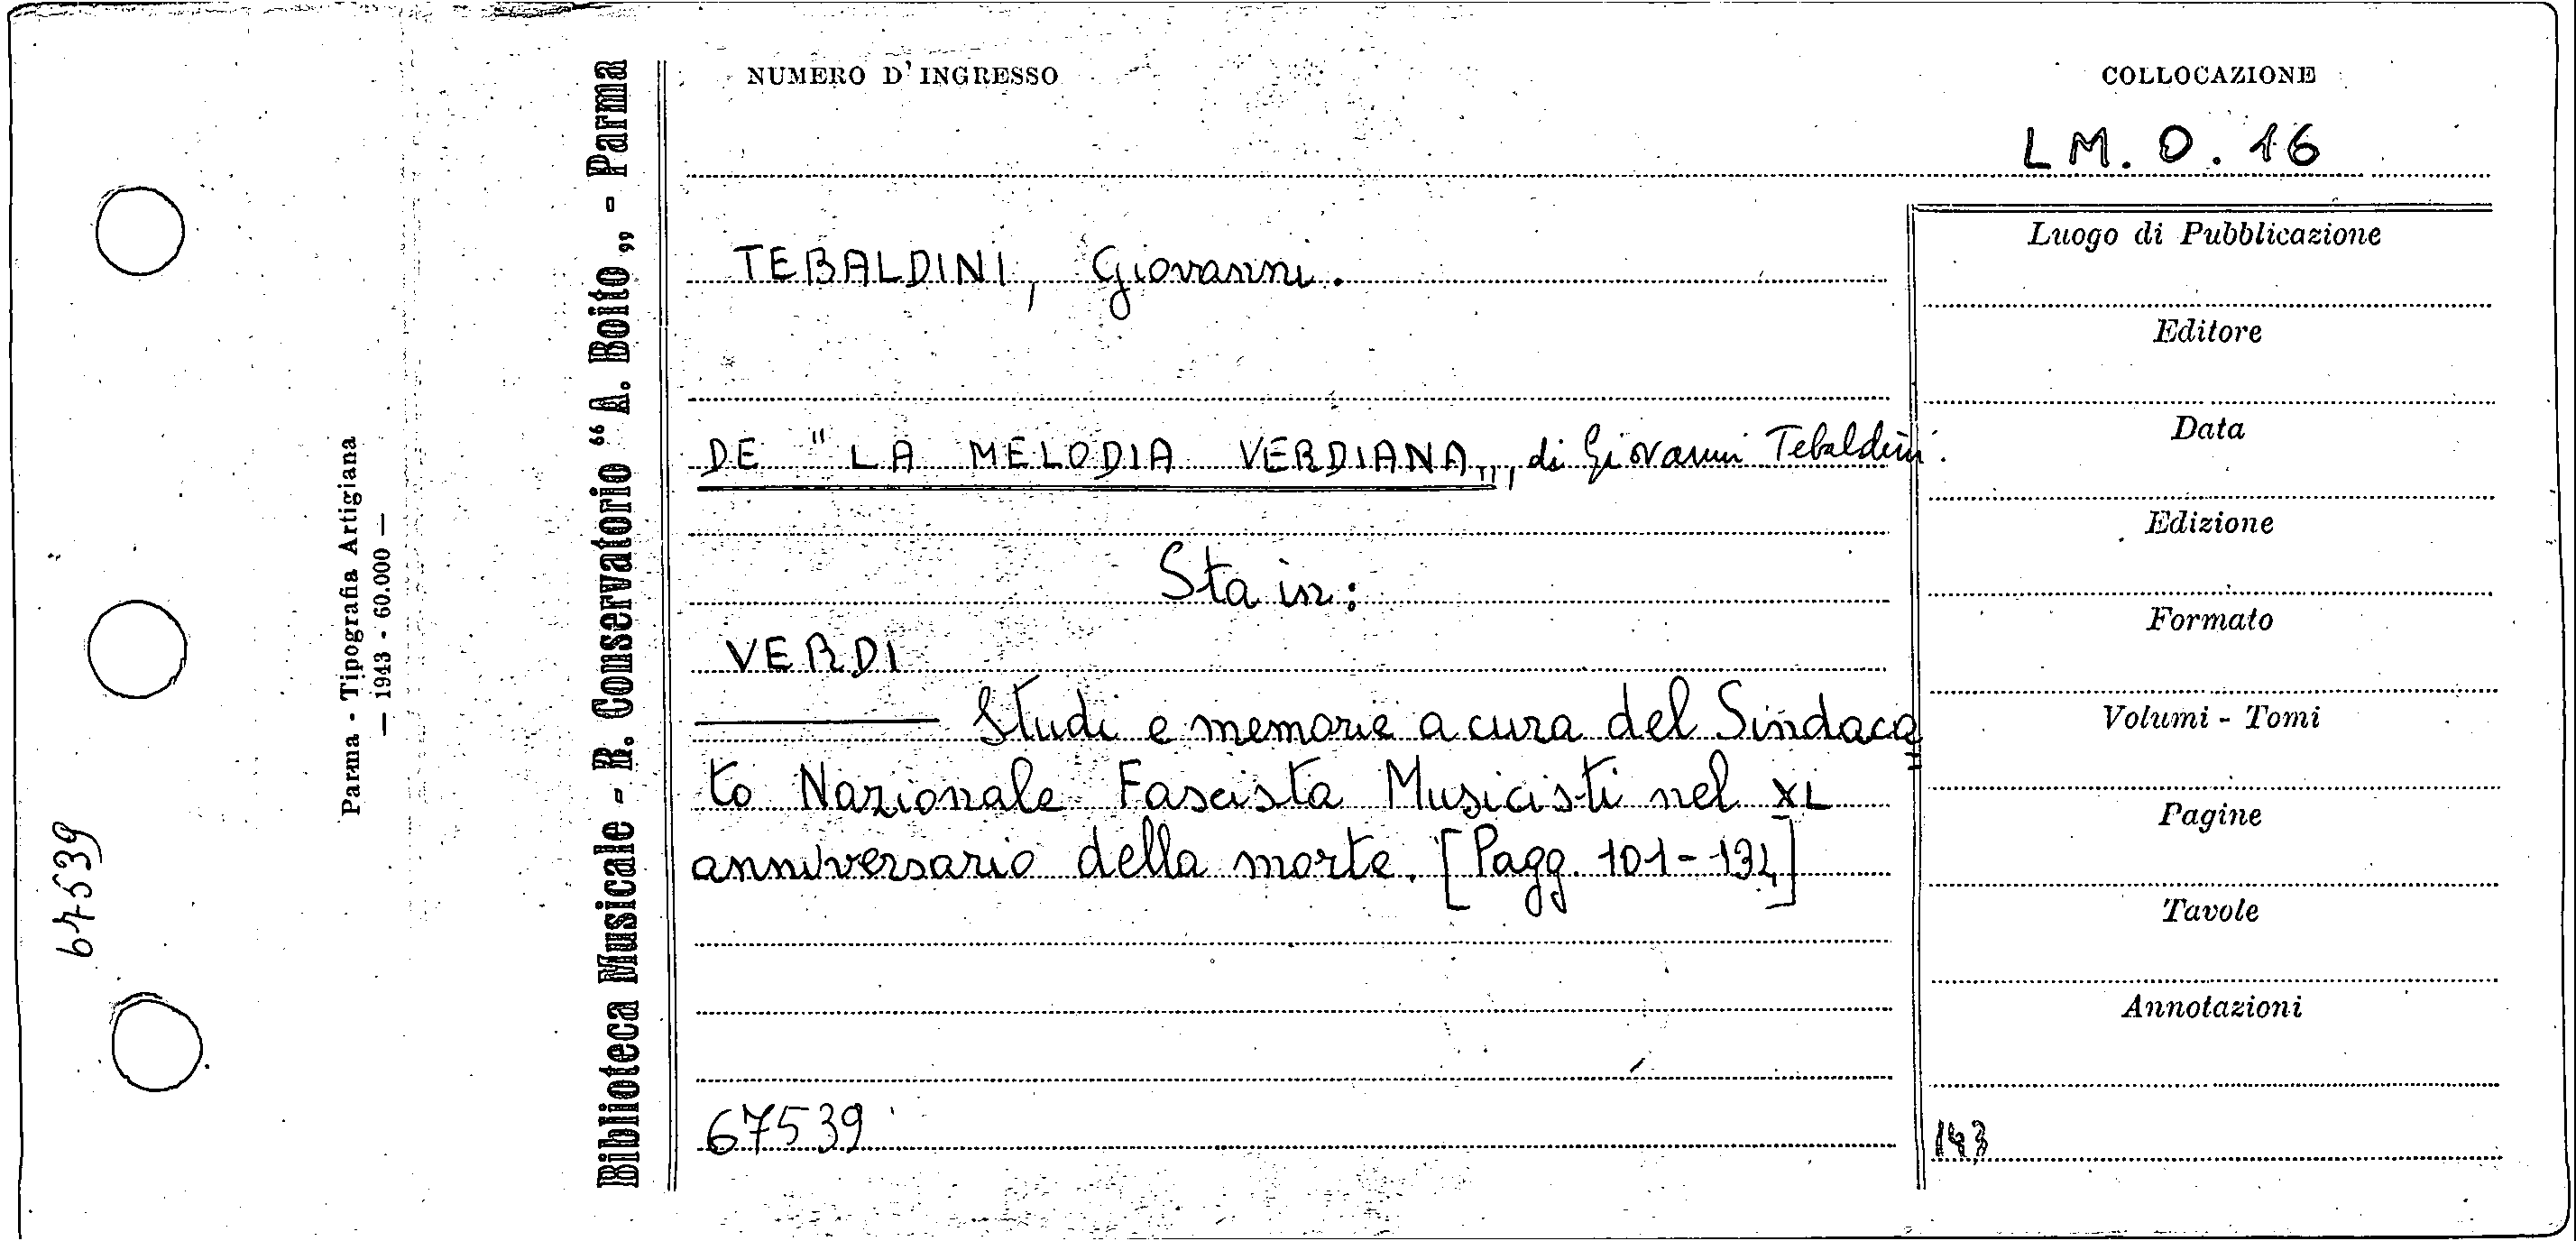 NUMERO D'INGRESSO
COLLOCAZIONE
LM. O. 16
TEBALDINI, Giovanni.
DE "LA MELODIA VERDIANA„, di Giovanni Tebaldini.
Sta in:
VERDI
Studi e memorie a cura del Sindaca=
to Nazionale Fascista Musicisti nel XL
anniversario della morte. [Pagg. 101-134]
67539
Luogo di Pubblicazione
Editore
Data
Edizione
Formato
Volumi - Tomi
Pagine
Tavole
Annotazioni
143
Biblioteca Musicale - R. Conservatorio “A. Boito„ - Parma
Parma - Tipografia Artigiana
— 1943 - 60.000 —
67539